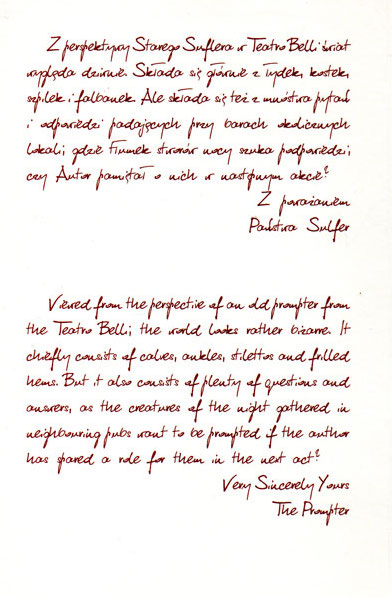 Z perspektywy Starego Suflera w Teatro Belli świat
wygląda dziwnie. Składa się głównie z łydek, kostek,
szpilek i falbanek. Ale składa się też z mnóstwa pytań
i odpowiedzi padających przy barach okolicznych
lokali; gdzie tłumek stworów nocy szuka podpowiedzi;
czy Autor pamiętał o nich w następnym akcie?
Z poważaniem
Państwa Sulfer
Viewed from the perspective of an old prompter from
the Teatro Belli; the world looks rather bizarre. It
chiefly consists of calves, ankles, stilettos and frilled
hems. But it also consists of plenty of questions and
answers, as the creatures of the night gathered in
neighbouring pubs want to be prompted if the author
has spared a role for them in the next act?
Very Sincerely Yours
The Prompter